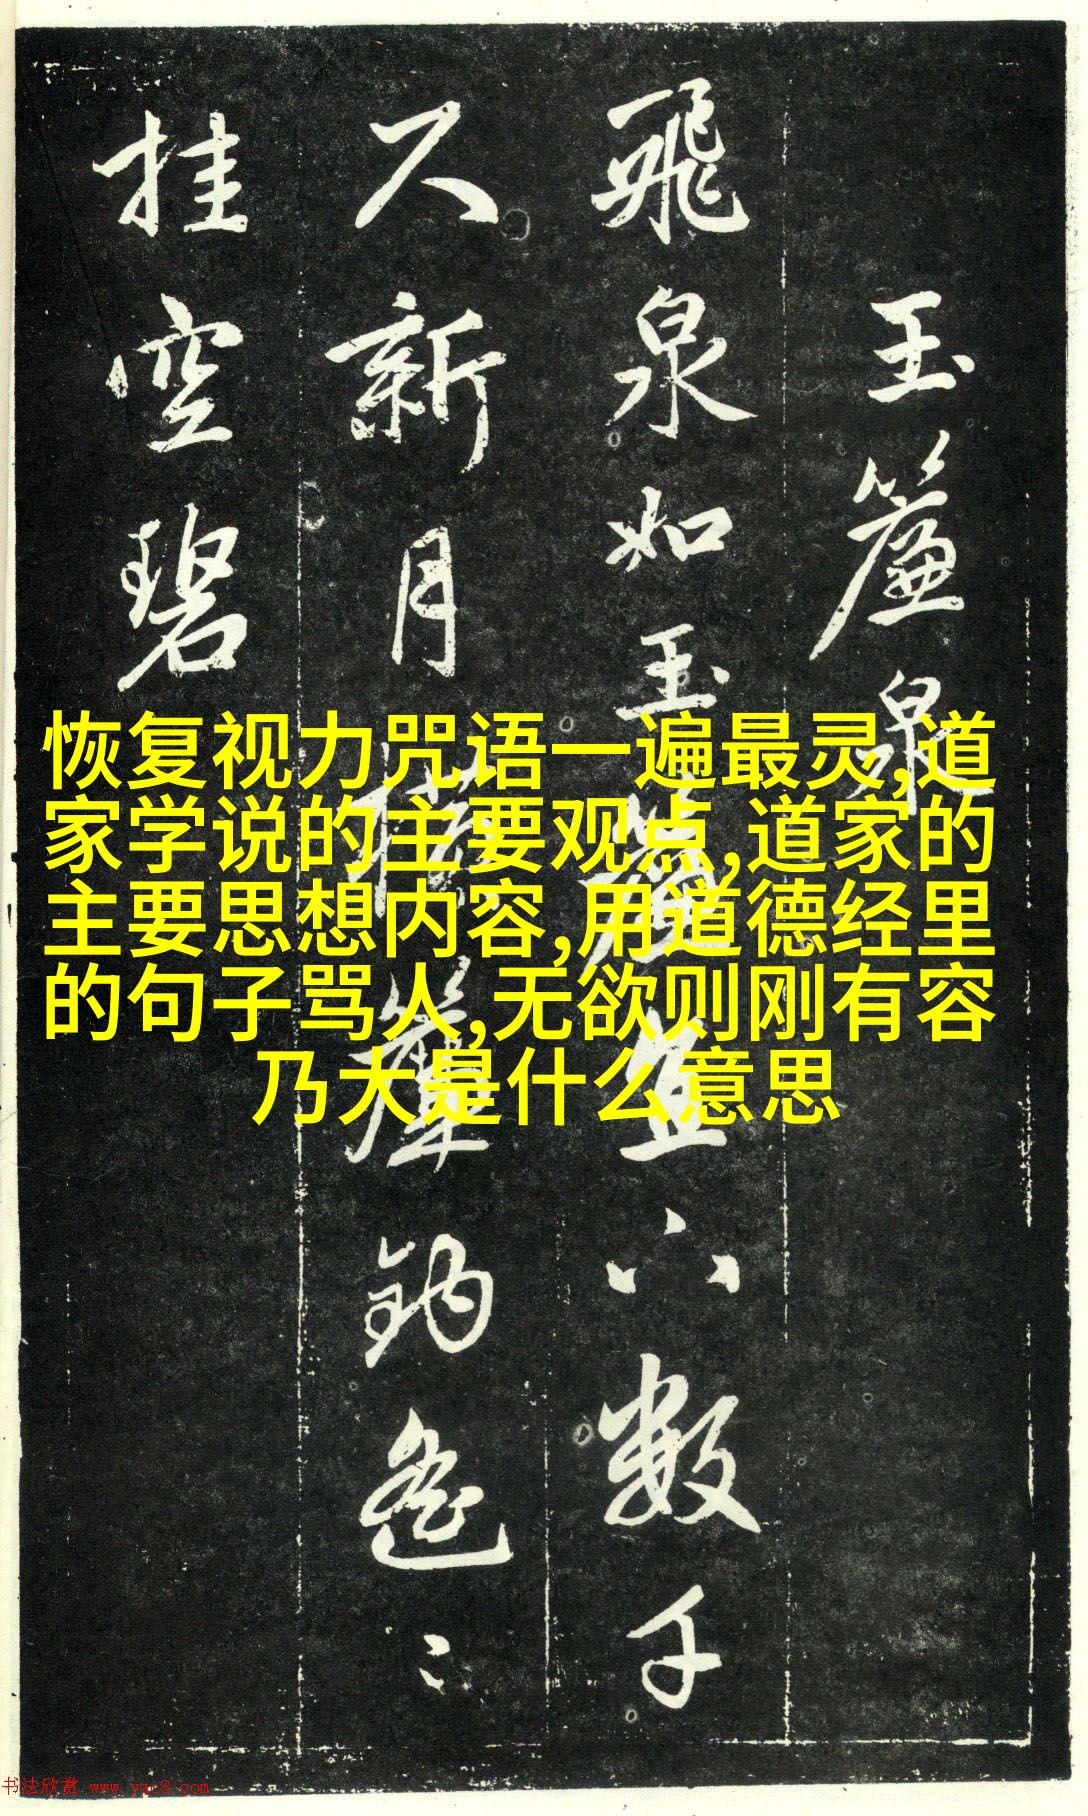 玉簾泉
飛泉如玉簾直下數千
尺新月橫簾鈎遙〻
挂空碧
恢复视力咒语一遍最灵,道
家学说的主要观点,道家的
主要思想内容,用道德经里
的句子骂人,无欲则刚有容
乃大是什么意思
书法欣赏 www.yac8.com